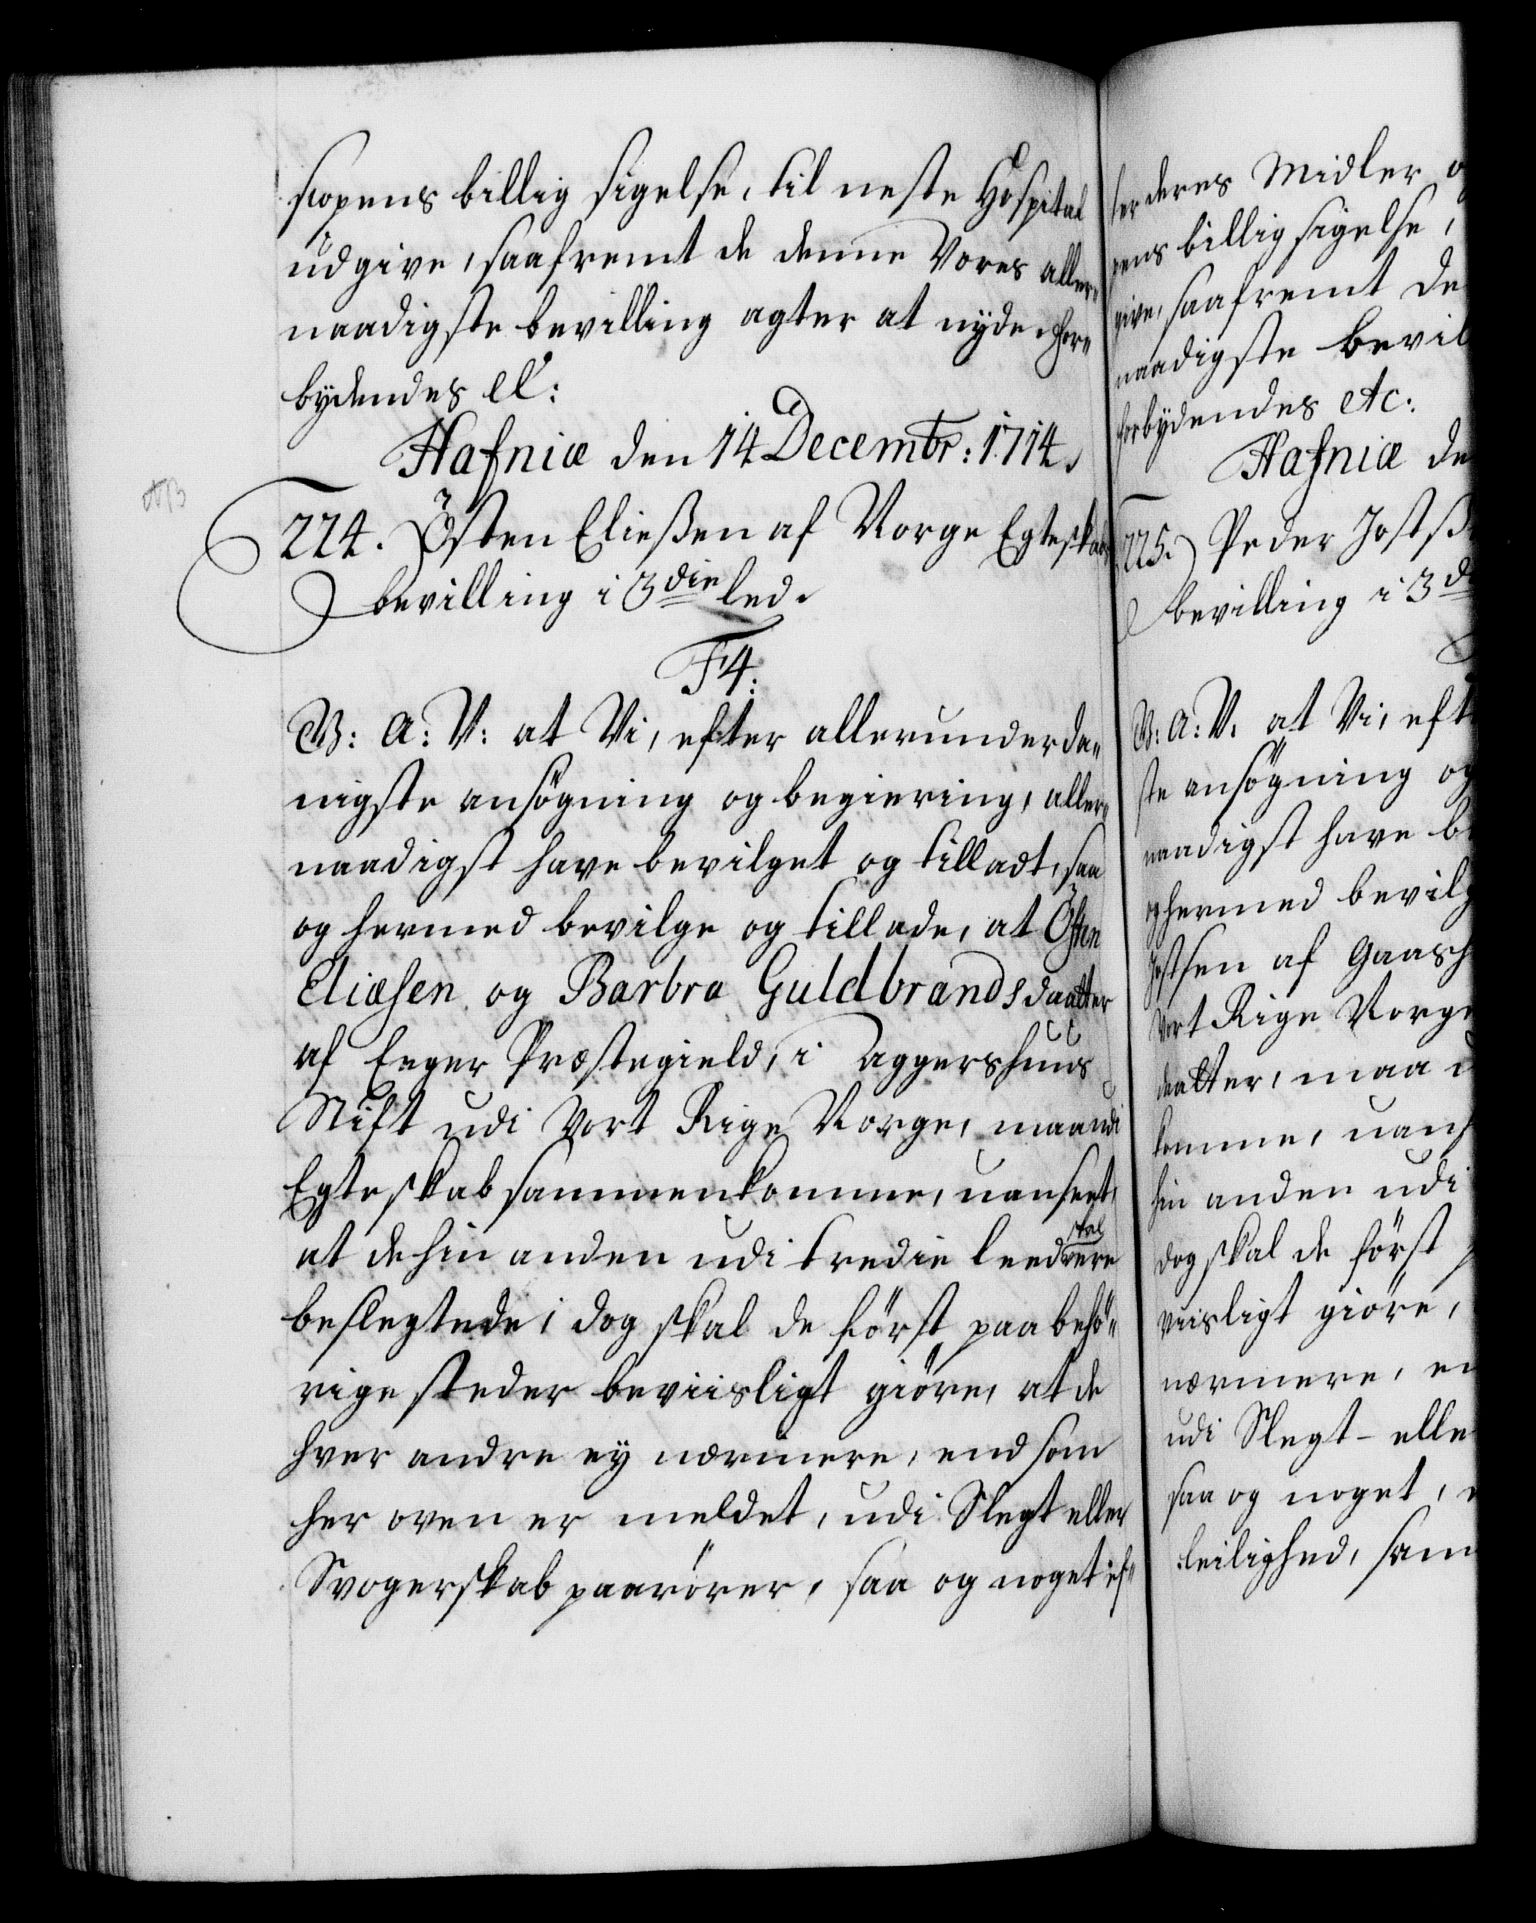 scopens billig sigelse, til neste Hospital
udgive, saafremt de denne Vores aller„
naadigste bevilling agter at nyde. For„
bydendes etc:
Hafniæ den 14 Decembr: 1714.
224. Østen Eließen af Norge Egteskabs
bevilling i 3die led.
F4:
V: A: V: at Vi, efter allerunderda„
nigste ansögning og begiering, aller„
naadigst have bevilget og tilladt, saa
og hermed bevilge og tillade, at Östen
Eliæsen og Barbra Guldbrandsdaatter
af Enger Præstegield, i Aggershuus
Stift udi Vort Rige Norge, maa udi
Egteskab sammenkomme, uanseet,
at de hin anden udi tredie leed skal vere
beslegtede; dog skal de först paa behö„
rige steder beviisligt giöre, at de
hver andre ey nærmere, end som
her oven er meldet, udi Slegt eller
Svogerskab paarörer, saa og noget ef„
ter deres Midler
pens billig sigelse,
give, saafremt de
naadigste bevil
forbydendes etc:
Hafniæ de
225. Peder Jostß
bevilling i 3d
V: A: V: at Vi, eft
ste ansögning og
naadigst have be
og hermed bevilg
Jostsen af Gaash
Vort Rige Norge
daatter, maa u
komme, uans
hin anden udi
dog skal de först
viisligt giöre,
nærmere, en
udi Slegt- elle
saa og noget,
leilighed, sam